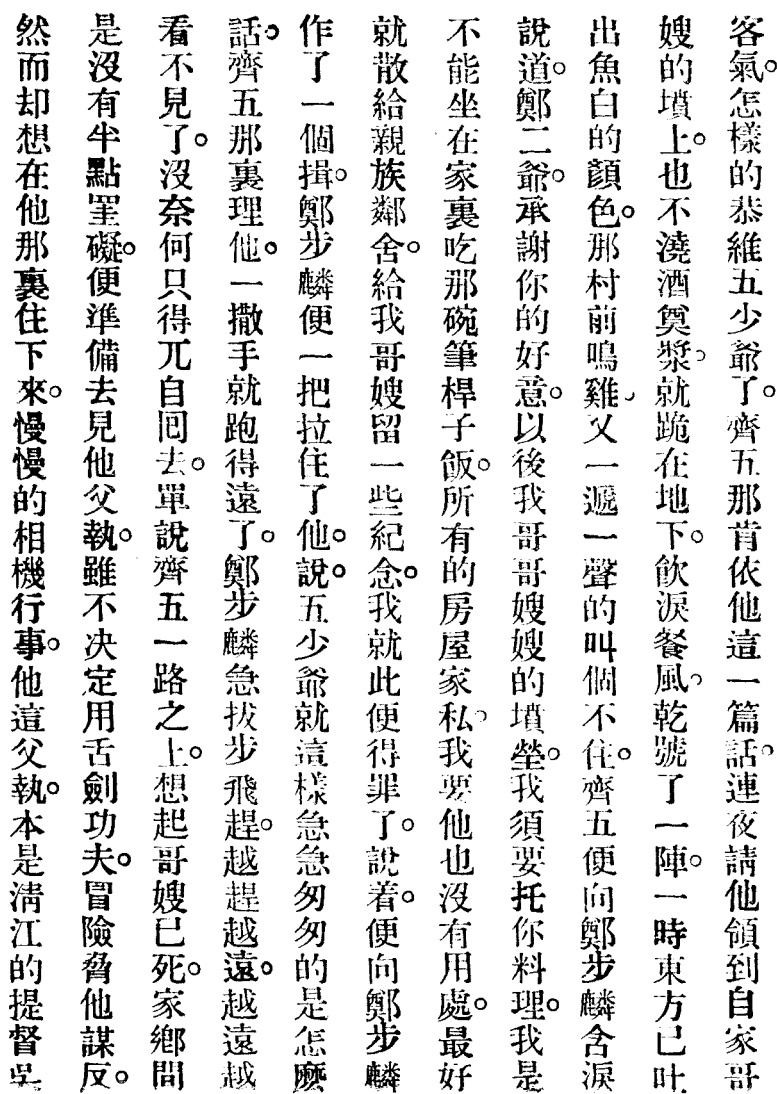 客氣。怎樣的恭維五少爺了。齊五那肯依他這一篇話。連夜請他領到自家哥
嫂的墳上。也不澆酒奠漿。就跪在地下。飲淚餐風。乾號了一陣。一時東方已吐
出魚白的顏色。那村前鳴雞、又一遞一聲的叫個不住。齊五便向鄭步麟含淚
說道。鄭二爺。承謝你的好意。以後我哥哥嫂嫂的墳塋。我須要托你料理。我是
不能坐在家裏吃那碗筆桿子飯。所有的房屋家私。我要他也沒有用處。最好
就散給親族鄰舍。給我哥嫂留一些紀念。我就此便得罪了。說着。便向鄭步麟
作了一個揖。鄭步麟便一把拉住了他。說。五少爺就這樣急急匆匆的是怎麽
話。齊五那裏理他。一撒手就跑得遠了。鄭步麟急拔步飛趕。越趕越遠。越遠越
看不見了。沒奈何只得兀自囘去。單說齊五一路之上。想起哥嫂已死。家鄉間
是沒有半點罣礙。便準備去見他父執。雖不决定用舌劍功夫。冒險脅他謀反。
然而却想在他那裏住下來。慢慢的相機行事。他這父執。本是淸江的提督吳